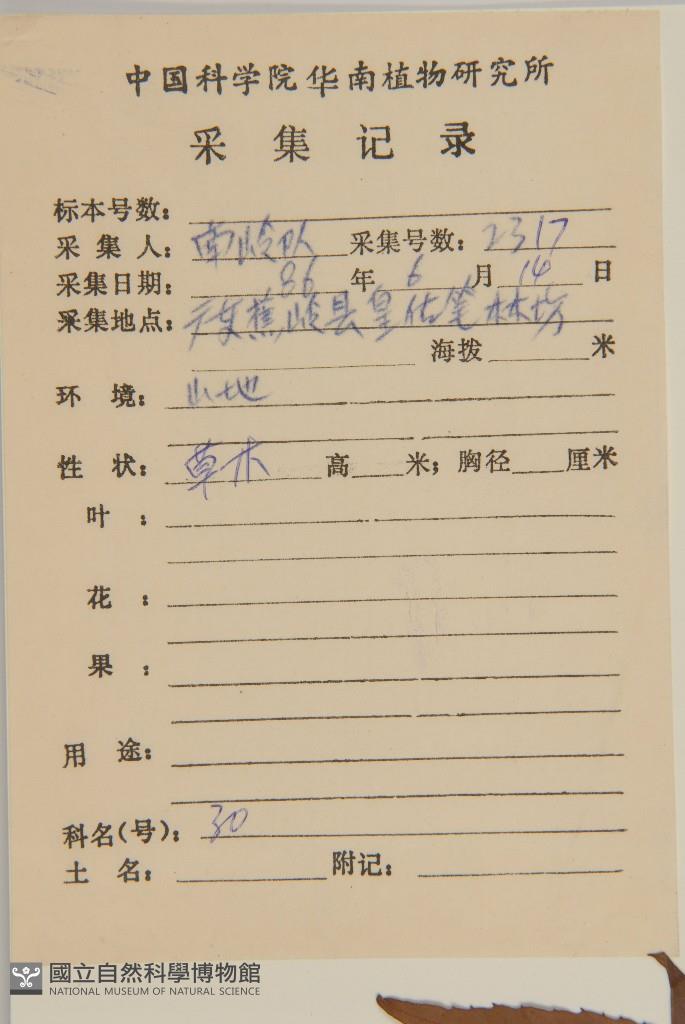 中国科学院华南植物研究所
采集记录
标本号数：
采集人：南岭队 采集号数：2317
采集日期：86年6月14日
采集地点：广东蕉岭县皇佑笔林场
海拨 米
环境：山地
性状：草木 高 米；胸径 厘米
叶：
花：
果：
用途：
科名(号)：30
土名： 附记：
國立自然科學博物館
NATIONAL MUSEUM OF NATURAL SCIENCE